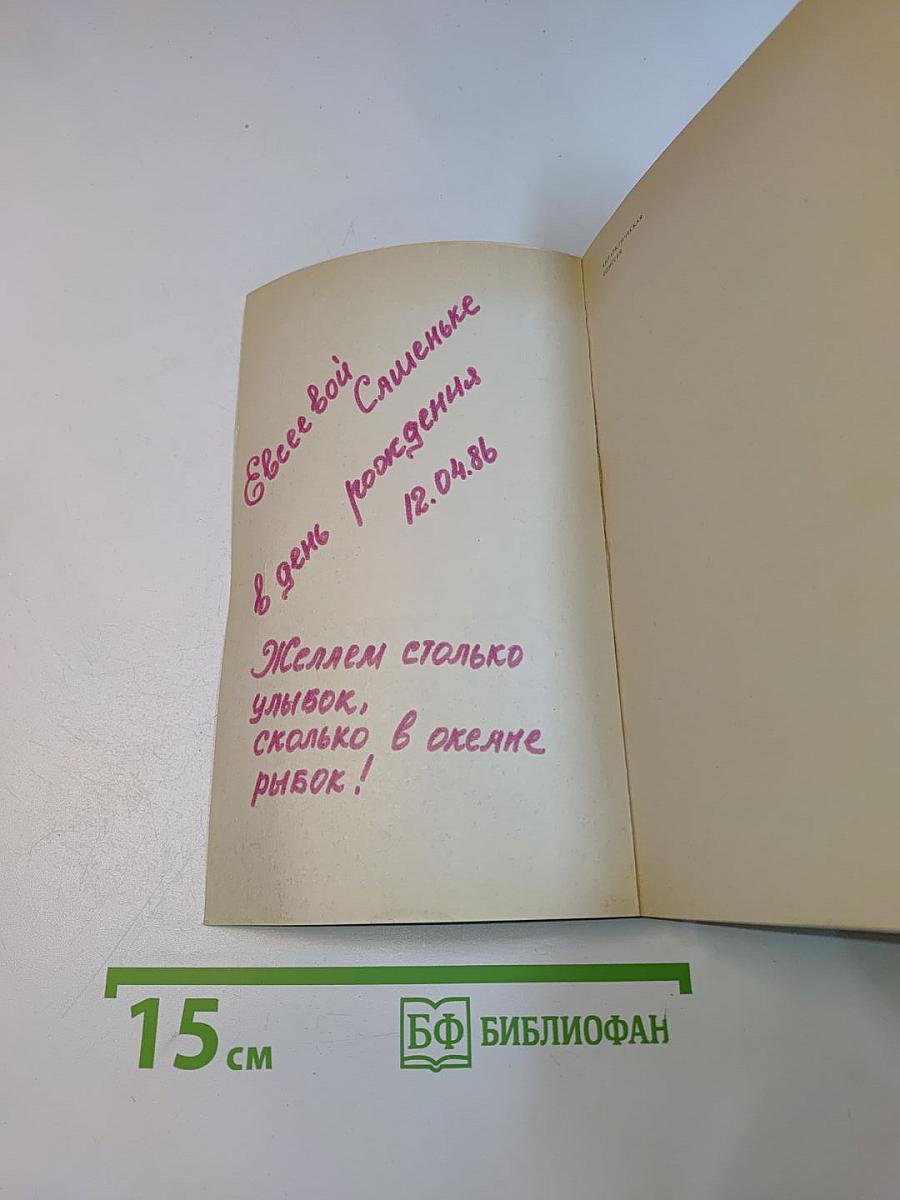 Евсеевой
Сашеньке
в день рождения
12.04.86
Желаем столько
улыбок,
сколько в океане
рыбок!
15 см
БФ БИБЛИОФАН